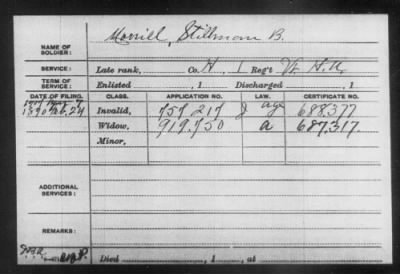 NAME OF SOLDIER: Morrill, Stillman B.
SERVICE: Late rank, Co. H, 1 Reg't Vt. H.A.
TERM OF SERVICE: Enlisted , 1 Discharged , 1
DATE OF FILING. CLASS. APPLICATION NO. LAW. CERTIFICATE NO.
1890 Feb. 24 Invalid, 757.217 g age 688.377
Widow, 919.750 a 687.317.
Minor,
ADDITIONAL SERVICES:
REMARKS:
Died , 1 , at